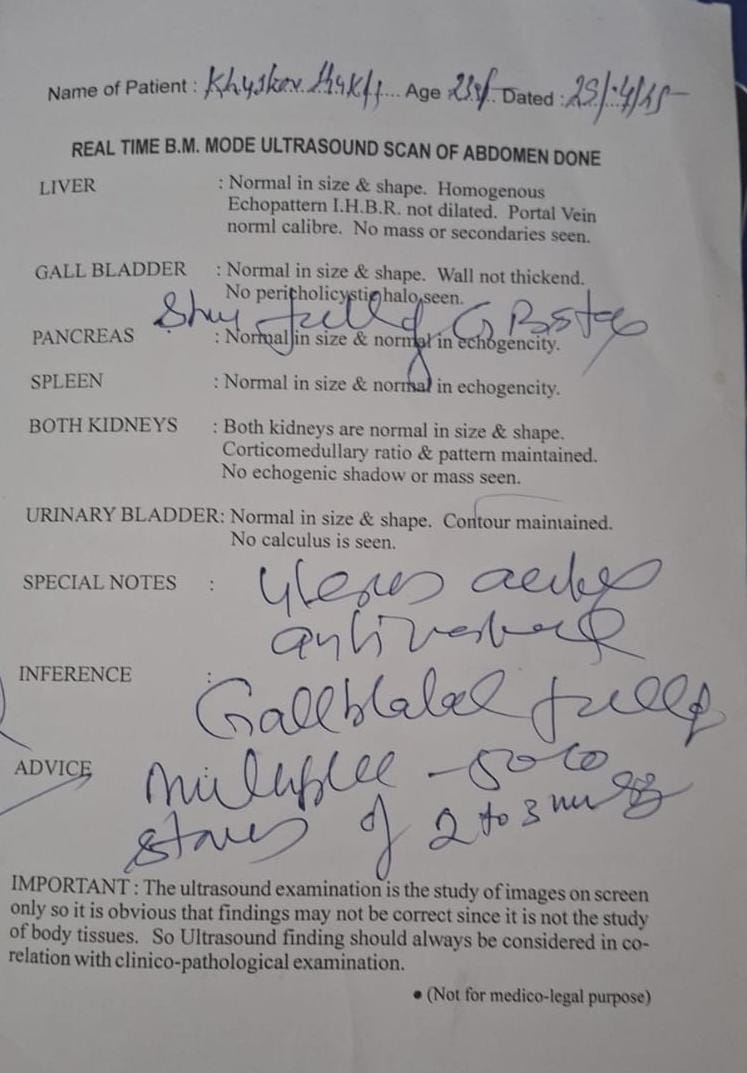 Name of Patient : Age Dated :
REAL TIME B.M. MODE ULTRASOUND SCAN OF ABDOMEN DONE
LIVER : Normal in size & shape. Homogenous
Echopattern I.H.B.R. not dilated. Portal Vein
norml calibre. No mass or secondaries seen.
GALL BLADDER : Normal in size & shape. Wall not thickend.
No pericholicystic halo seen.
full of
PANCREAS : Normal in size & normal in echogencity.
SPLEEN : Normal in size & normal in echogencity.
BOTH KIDNEYS : Both kidneys are normal in size & shape.
Corticomedullary ratio & pattern maintained.
No echogenic shadow or mass seen.
URINARY BLADDER: Normal in size & shape. Contour maintained.
No calculus is seen.
SPECIAL NOTES : uterus
INFERENCE :
full of
ADVICE multiple
stones of 2 to 3 mm
IMPORTANT : The ultrasound examination is the study of images on screen
only so it is obvious that findings may not be correct since it is not the study
of body tissues. So Ultrasound finding should always be considered in co-
relation with clinico-pathological examination.
• (Not for medico-legal purpose)